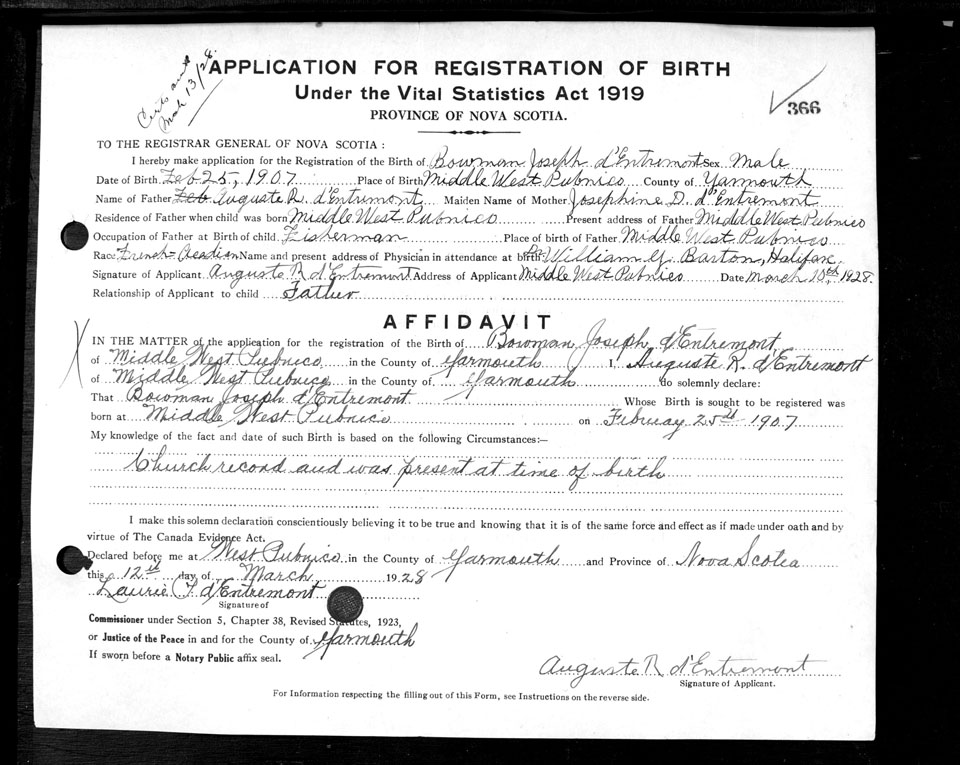 Certs sent
Mch 13/28.
APPLICATION FOR REGISTRATION OF BIRTH
Under the Vital Statistics Act 1919
PROVINCE OF NOVA SCOTIA.
366
TO THE REGISTRAR GENERAL OF NOVA SCOTIA:
I hereby make application for the Registration of the Birth of Bowman Joseph d'Entremont Sex Male
Date of Birth Feb 25, 1907 Place of Birth Middle West Pubnico County of Yarmouth
Name of Father Feb Auguste R. d'Entremont Maiden Name of Mother Josephine D. d'Entremont
Residence of Father when child was born Middle West Pubnico Present address of Father Middle West Pubnico
Occupation of Father at Birth of child Fisherman Place of birth of Father Middle West Pubnico
Race French-Acadian Name and present address of Physician in attendance at birth Dr. William Barton, Halifax
Signature of Applicant Auguste R d'Entremont Address of Applicant Middle West Pubnico Date March 10th, 1928.
Relationship of Applicant to child Father
AFFIDAVIT
IN THE MATTER of the application for the registration of the Birth of Bowman Joseph d'Entremont
of Middle West Pubnico in the County of Yarmouth I, Auguste R. d'Entremont
of Middle West Pubnico in the County of Yarmouth do solemnly declare:
That Bowman Joseph d'Entremont Whose Birth is sought to be registered was
born at Middle West Pubnico on Febuary 25th 1907
My knowledge of the fact and date of such Birth is based on the following Circumstances:—
Church record and was present at time of birth
I make this solemn declaration conscientiously believing it to be true and knowing that it is of the same force and effect as if made under oath and by
virtue of The Canada Evidence Act.
Declared before me at West Pubnico in the County of Yarmouth and Province of Nova Scotia
this 12th day of March 1928
Laurie d'Entremont
Signature of
Commissioner under Section 5, Chapter 38, Revised Statutes, 1923,
or Justice of the Peace in and for the County of Yarmouth
If sworn before a Notary Public affix seal.
Auguste R d'Entremont
Signature of Applicant.
For Information respecting the filling out of this Form, see Instructions on the reverse side.